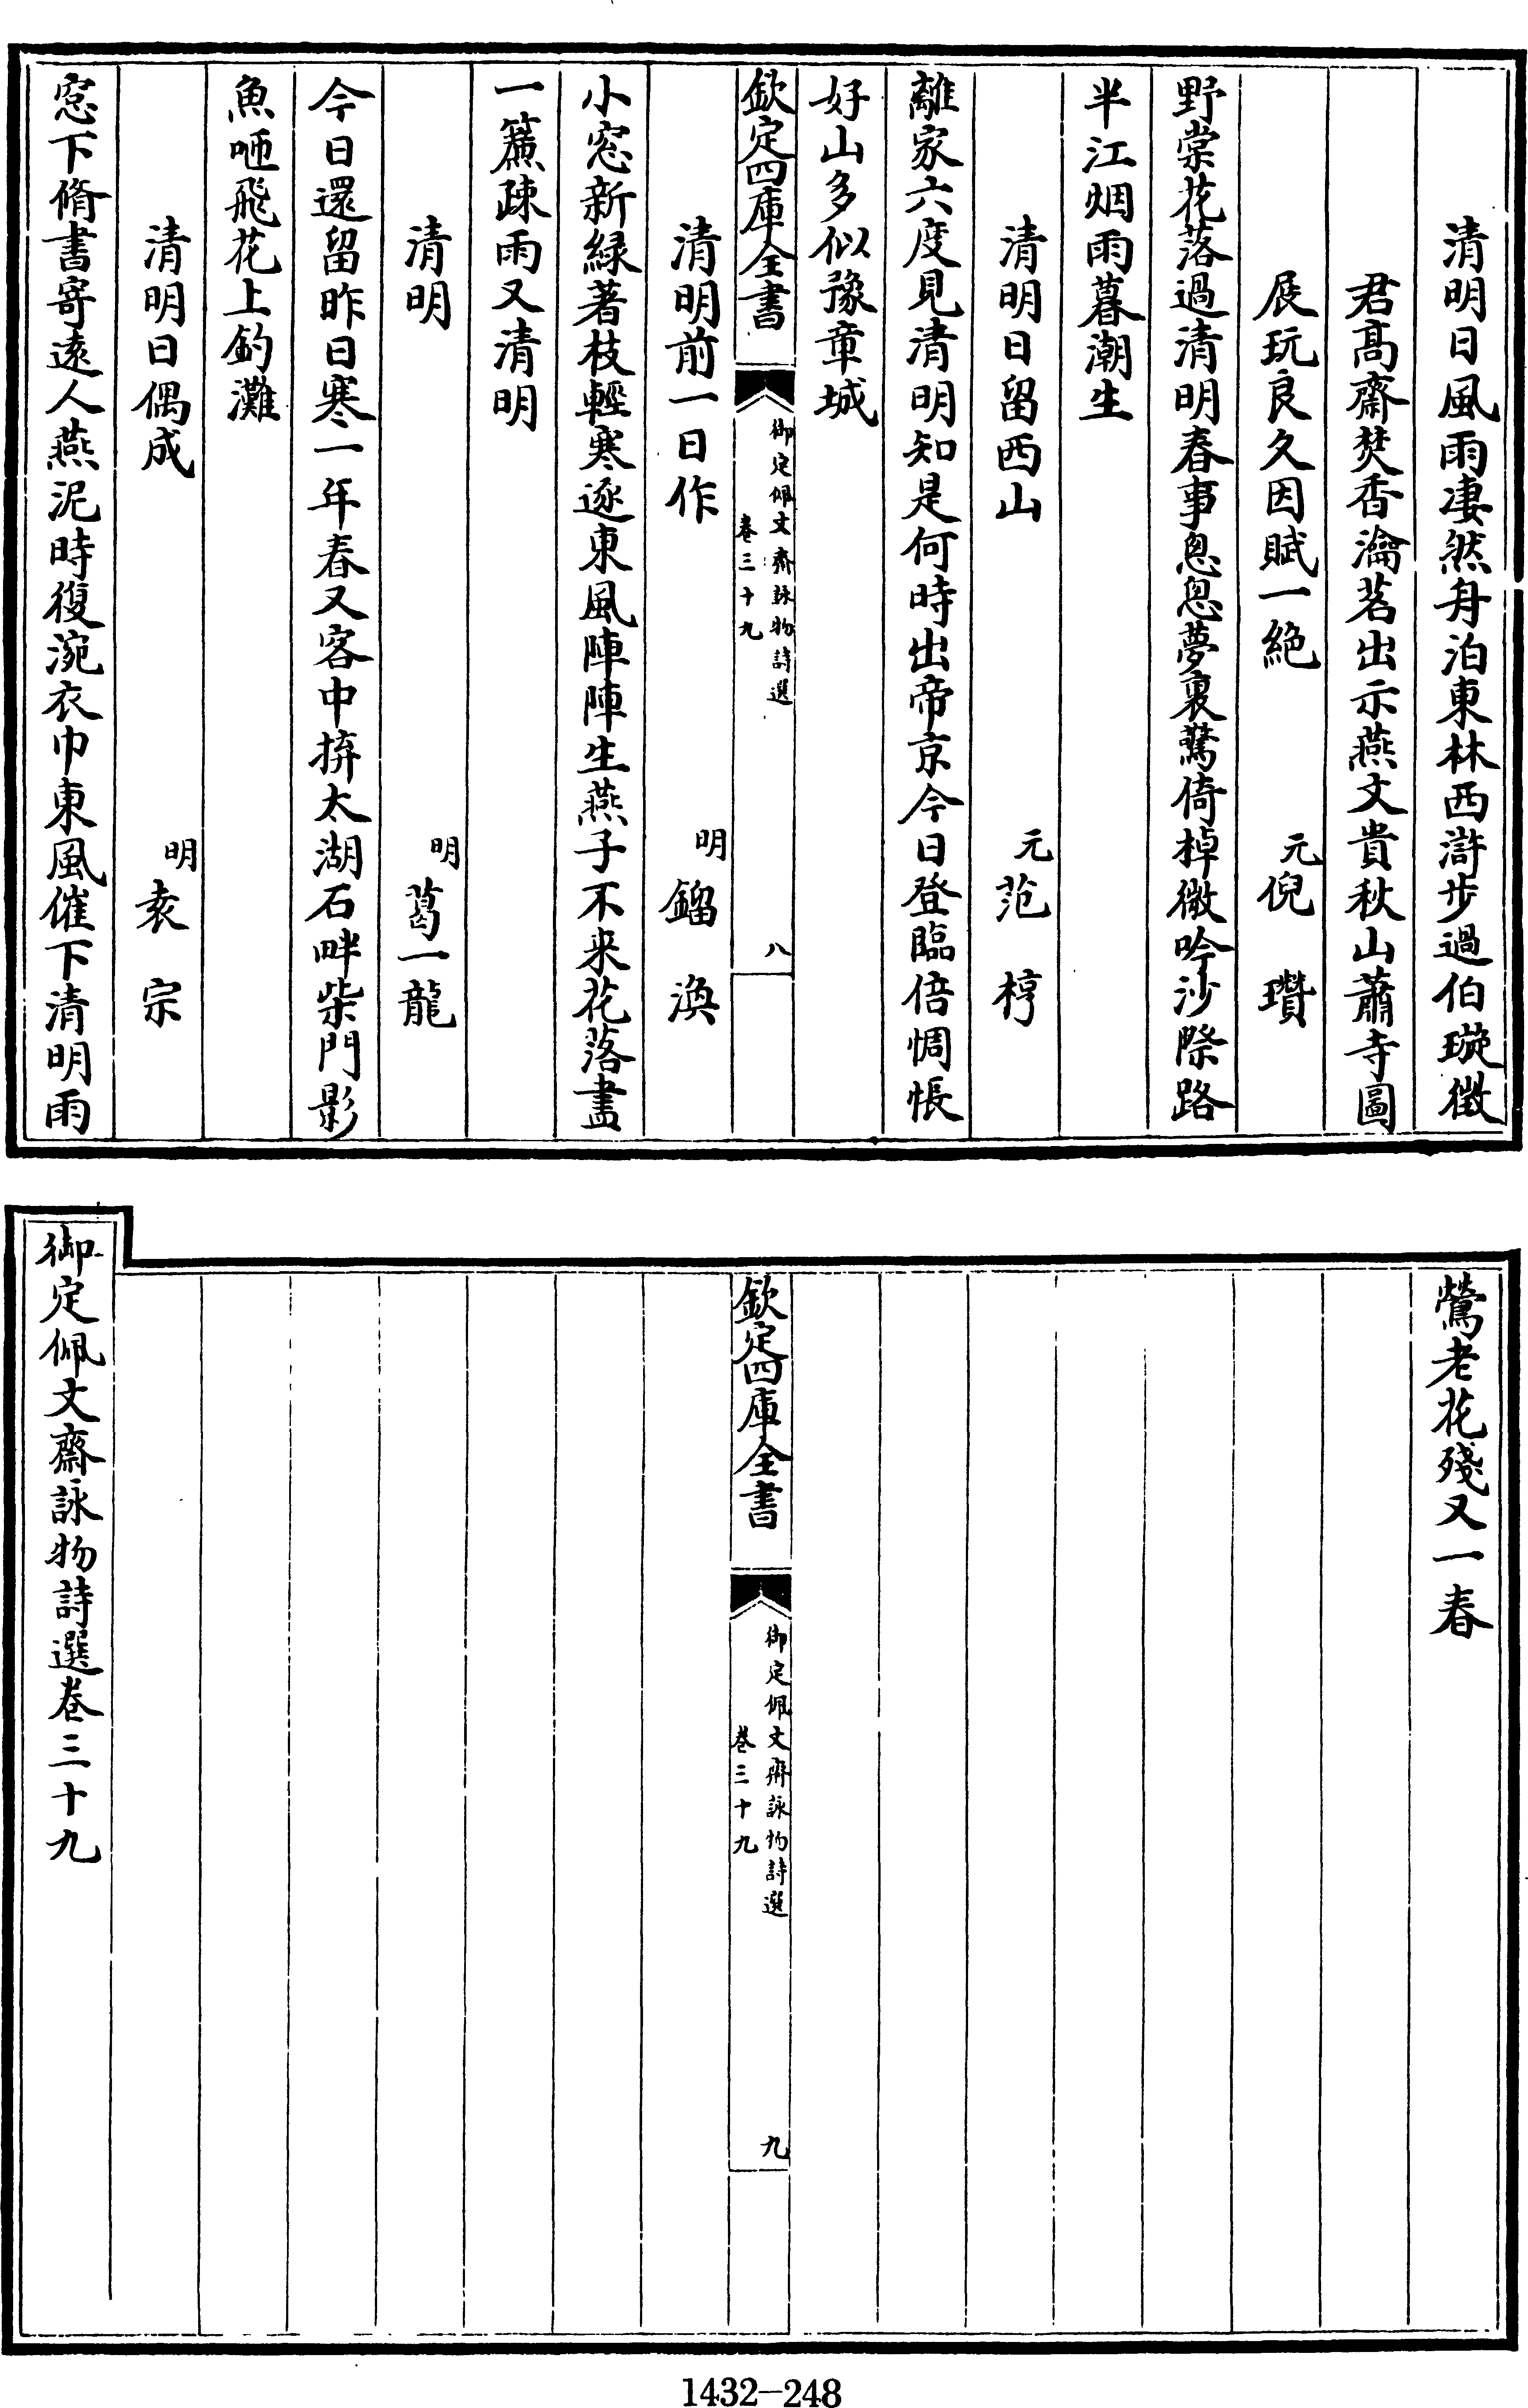 清明日風雨凄然舟泊東林西滸步過伯璇徴
君髙齋焚香瀹茗出示燕文貴秋山蕭寺圖
展玩良久因賦一絶
元倪瓚
野棠花落過清明春事悤悤夢裏驚倚棹微吟沙際路
半江烟雨暮潮生
清明日留西山
元范梈
離家六度見清明知是何時出帝京今日登臨倍惆悵
好山多似豫章城
欽定四庫全書
御定佩文齋詠物詩選
卷三十九
八
清明前一日作
明鎦渙
小窓新緑著枝輕寒逐東風陣陣生燕子不来花落盡
一簾疎雨又清明
清明
明葛一龍
今日還留昨日寒一年春又客中拚太湖石畔柴門影
魚咂飛花上釣灘
清明日偶成
明袁宗
窓下脩書寄逺人燕泥時復涴衣巾東風催下清明雨
鶯老花殘又一春
欽定四庫全書
御定佩文齋詠物詩選
卷三十九
九
御定佩文齋詠物詩選卷三十九
1432-248